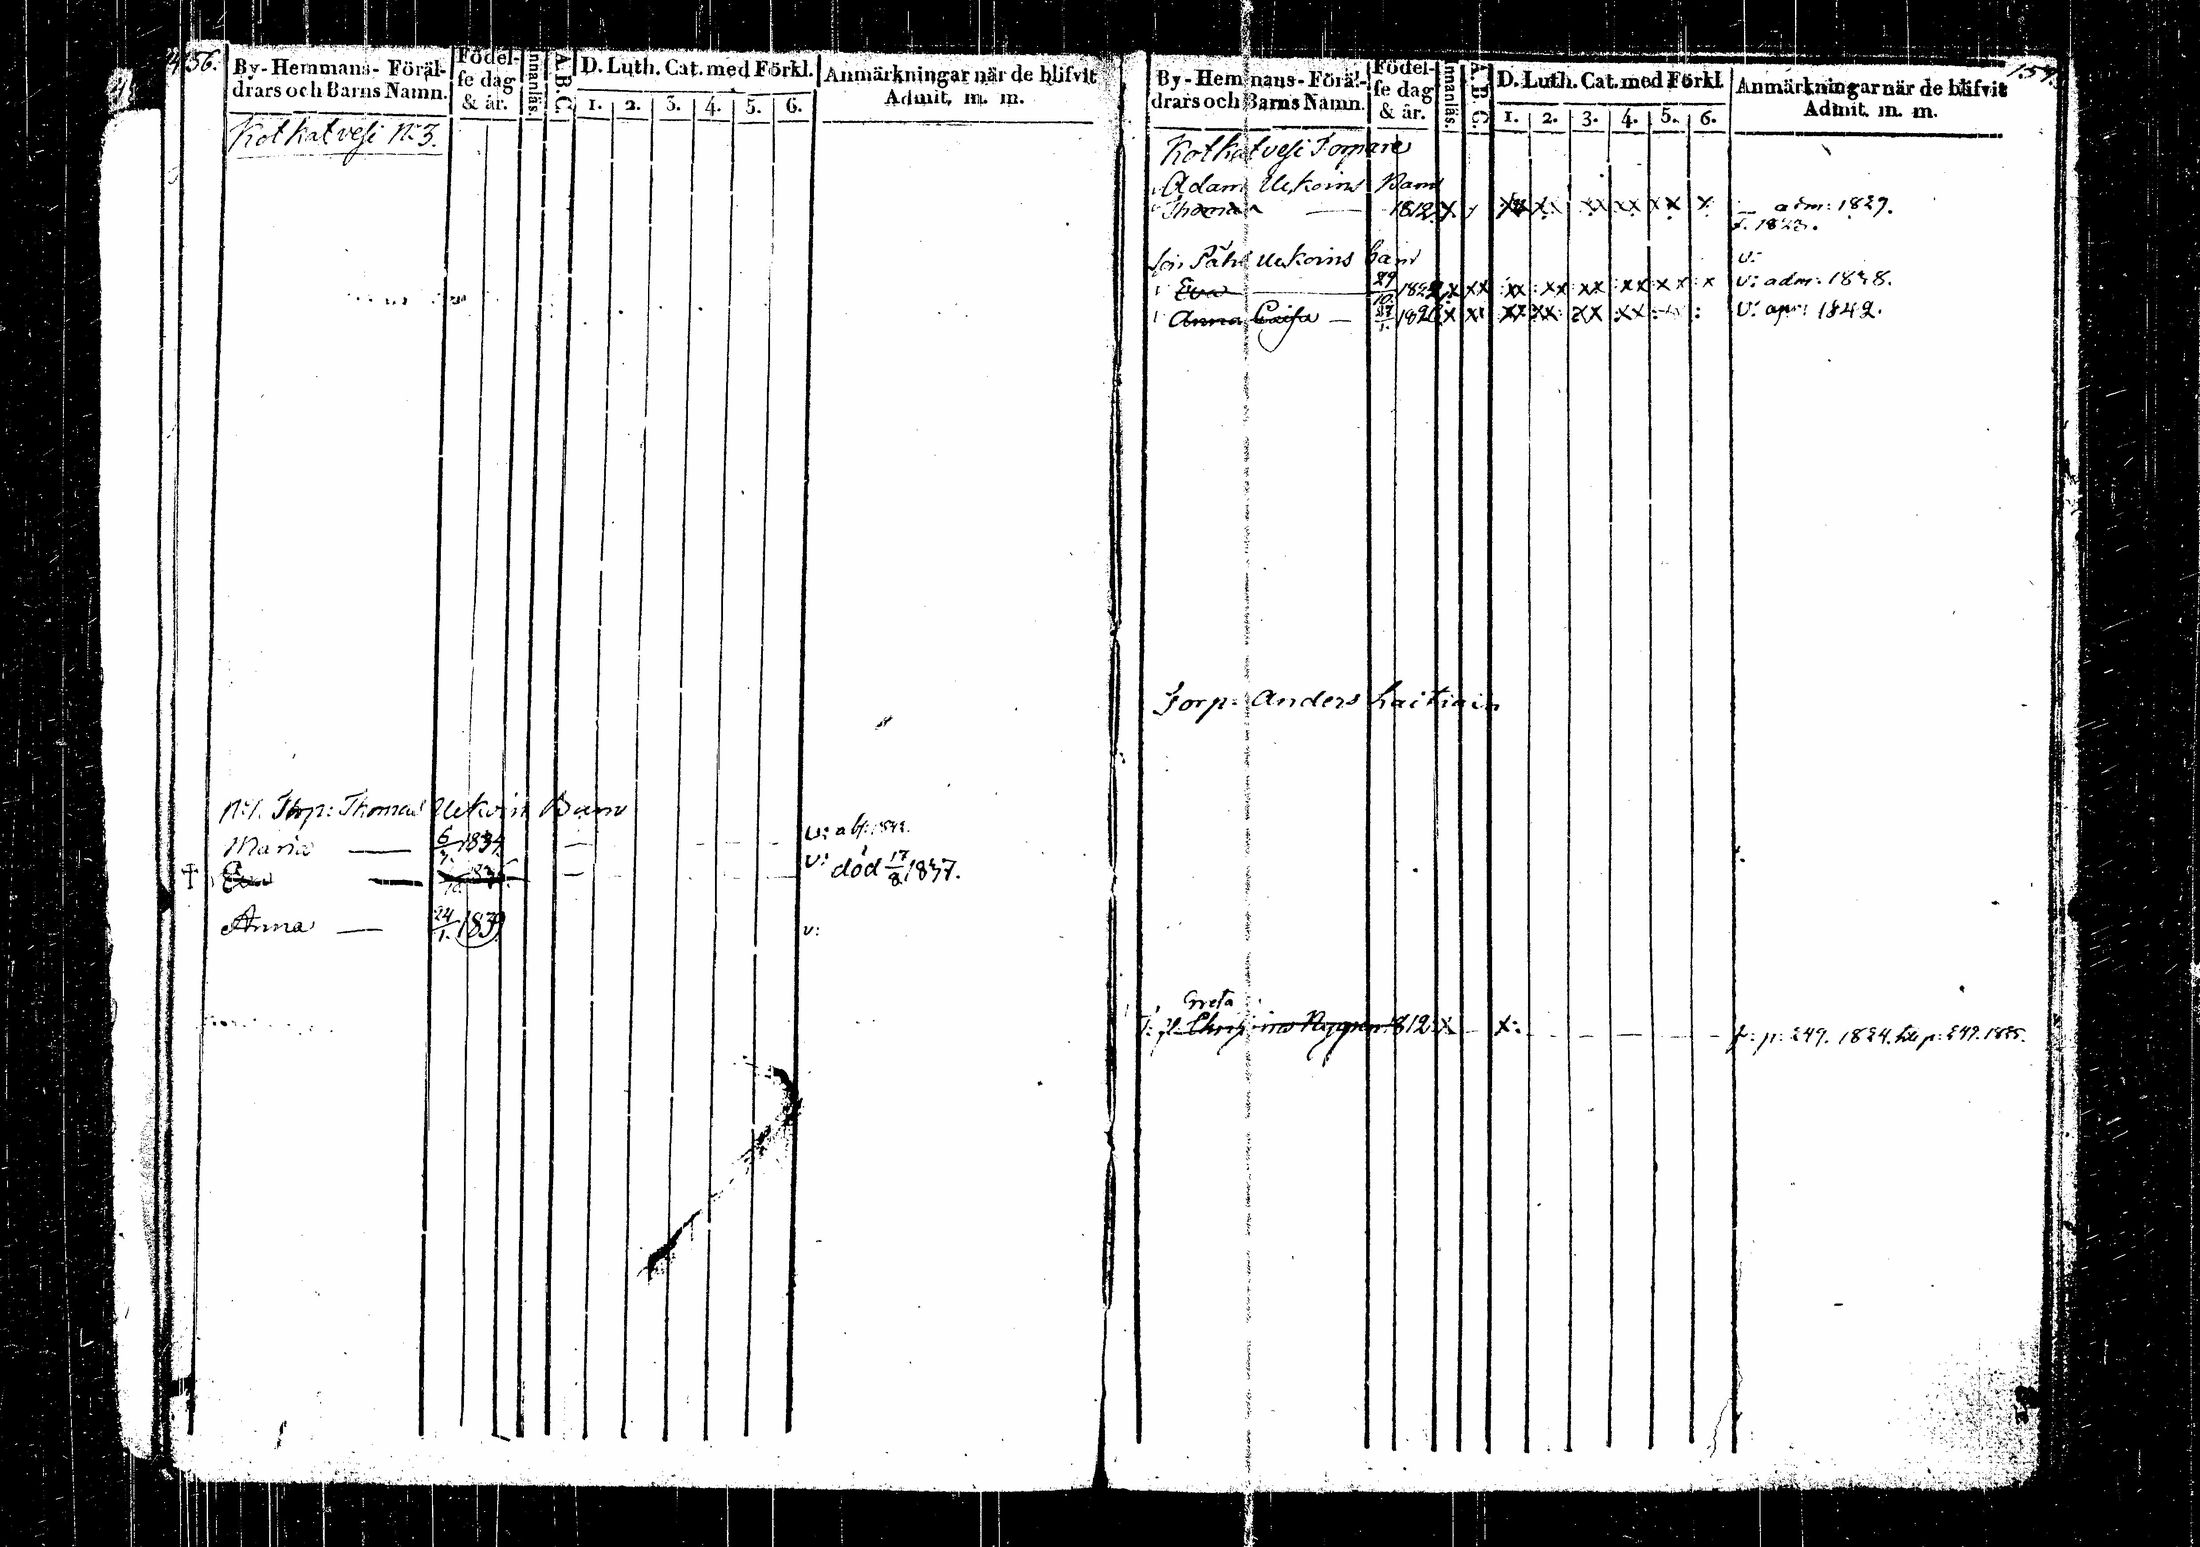 156.
By-Hemmans-Föräl-
drars och Barns Namn.
Födel-
se dag
& år.
Innanläs.
A.B.C.
D. Luth. Cat. med Förkl.
1. 2. 3. 4. 5. 6.
Anmärkningar när de blifvit
Admit. m. m.
Kotkatvesi N:3.
N:1. Torp: Thomas Ukoin Barn
Maria — 6/7. 1834. v: 
† Eva — v: död 17/8 1837.
Anna — 24/1. 1839 v:
157.
By-Hemmans-Föräl-
drars och Barns Namn.
Födel-
se dag
& år.
Innanläs.
A.B.C.
D. Luth. Cat. med Förkl.
1. 2. 3. 4. 5. 6.
Anmärkningar när de blifvit
Admit. m. m.
Kotkatvesi Torpare
Adam Ukoins Barn
Thomas — 1812. x xx x xx xx xx x adm: 1829.
f. 1823.
Påhl Ukoins barn v:
Eva — 29/10. 1822 x xx xx xx xx xx xx x v: adm: 1838.
Anna Caisa — 27/1. 1826 x xx xx xx xx xx v: 1842.
Torp: Anders Laitiain
Greta
1812 x — x: — f: p: 249. 1824. till p: 249. 1825.